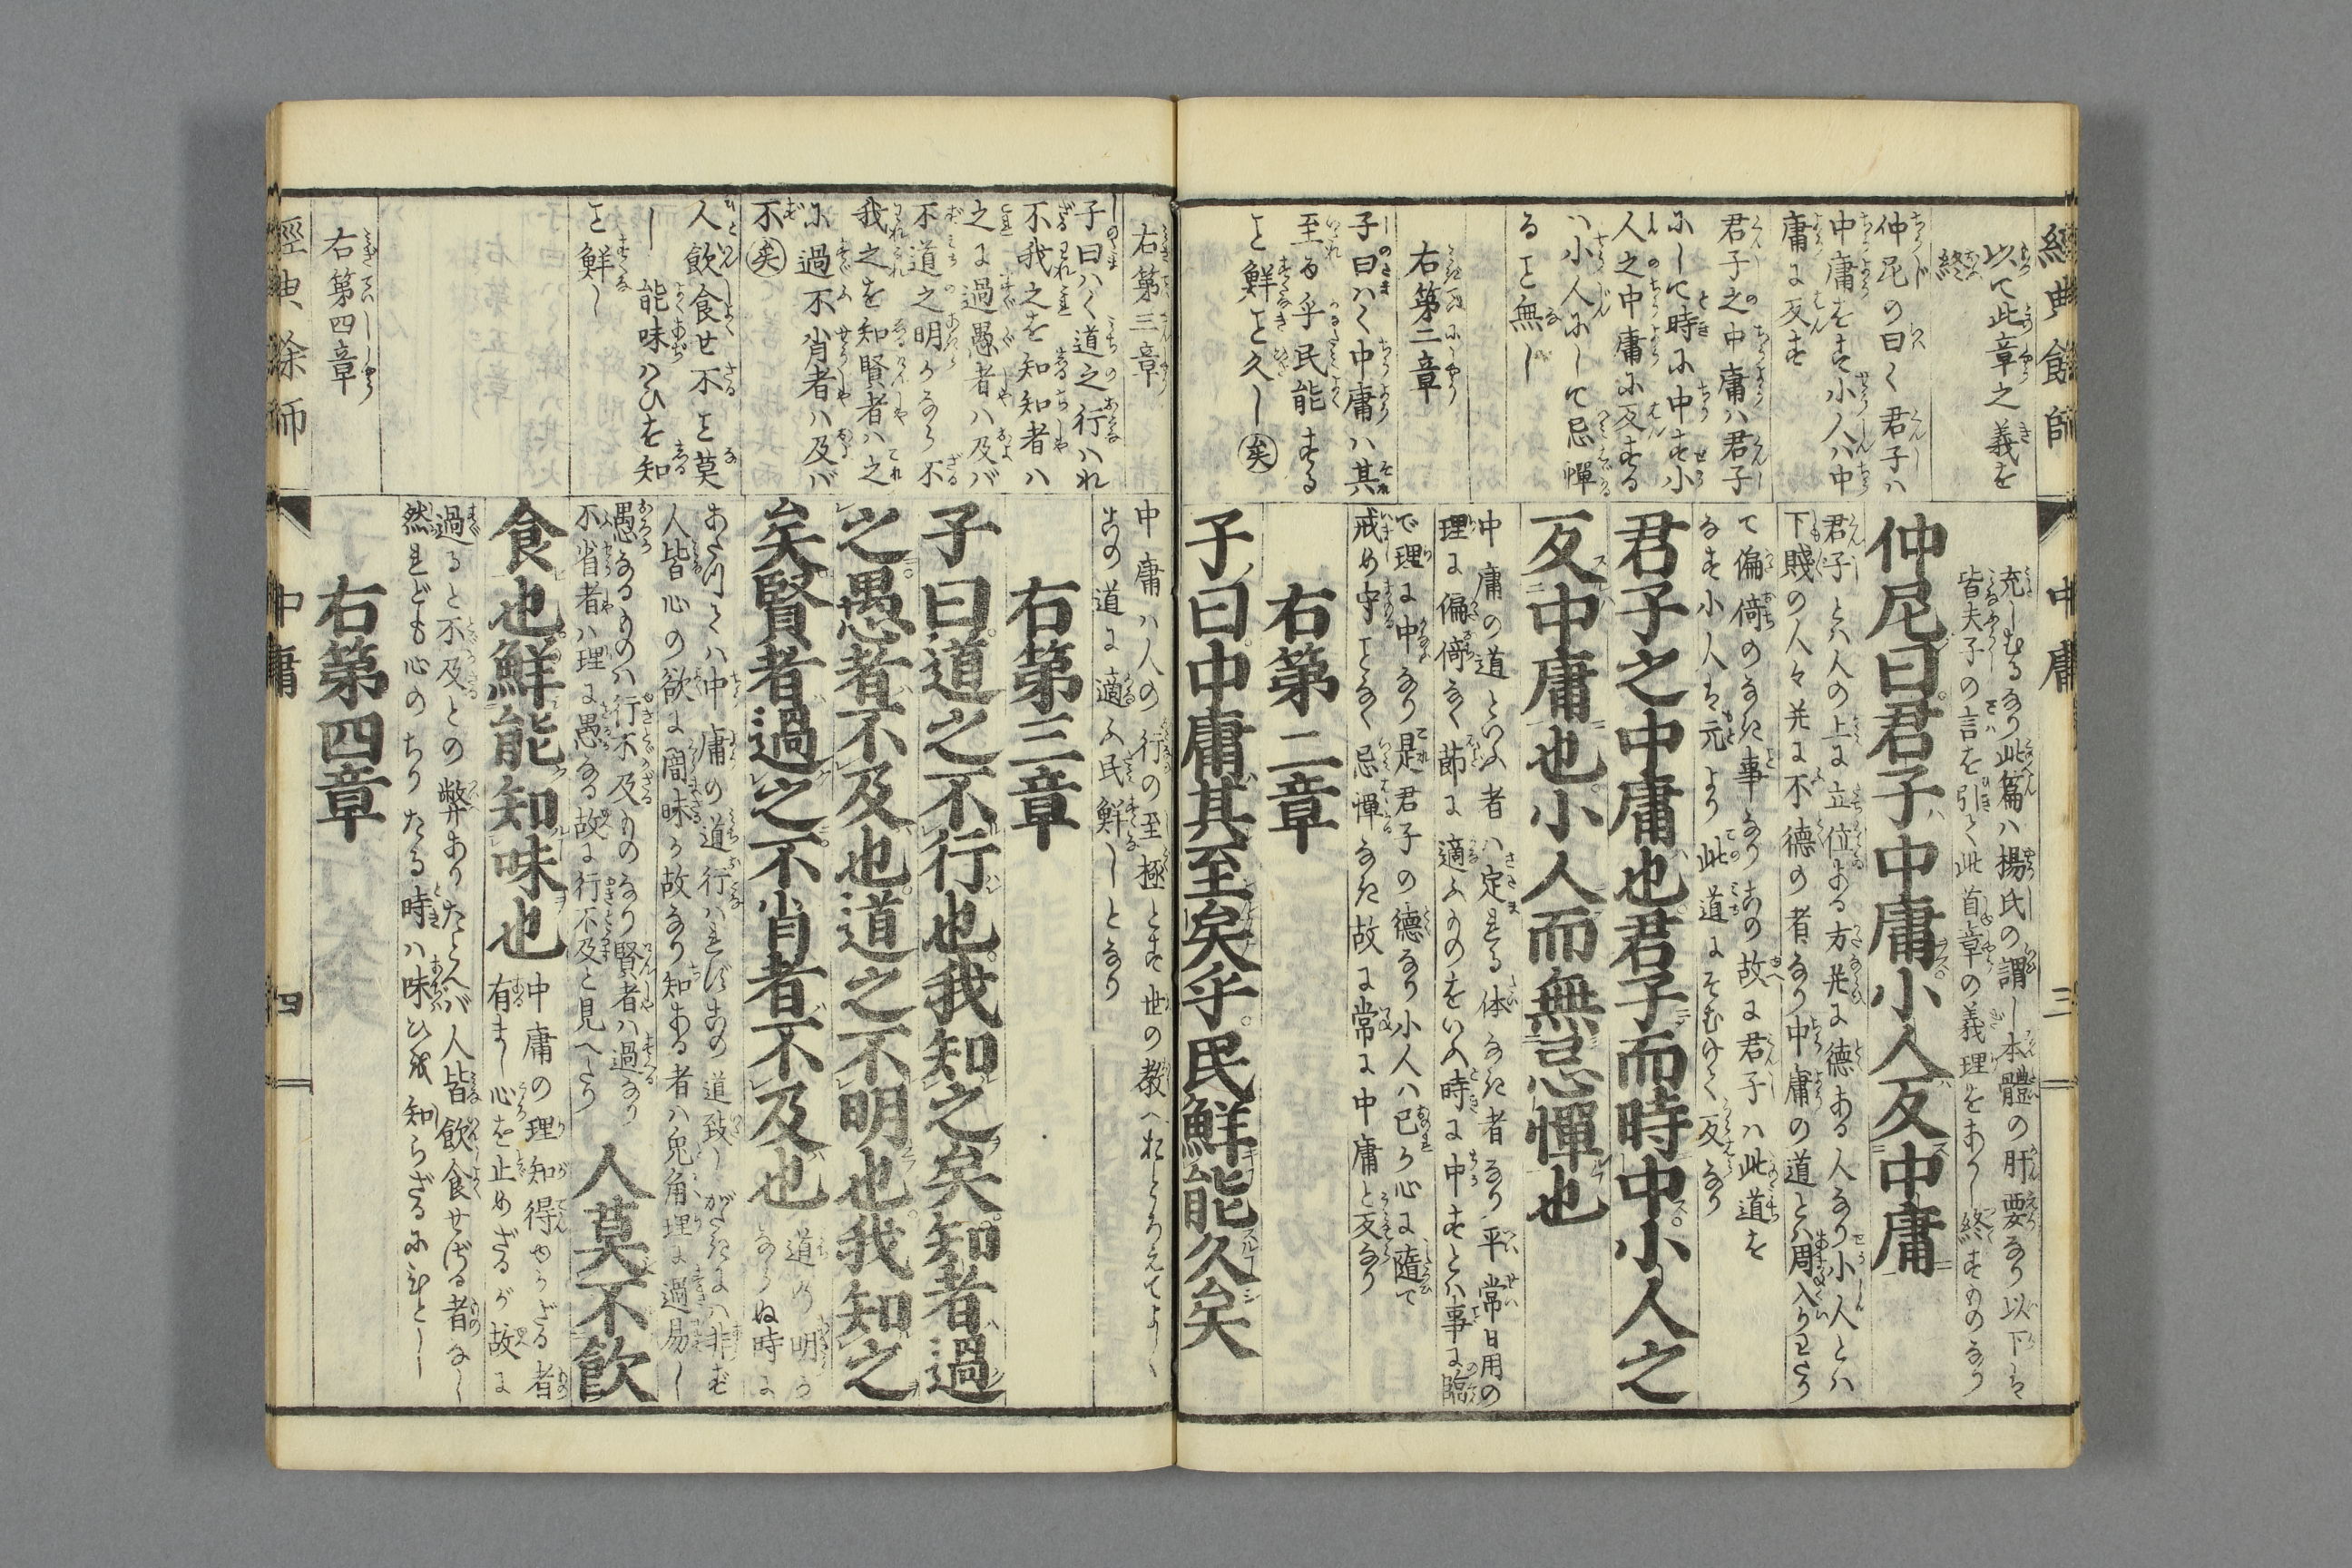 經典餘師
中庸
三
以て此章之義を
終
仲尼の曰く君子ハ
中庸をす小人ハ中
庸に反す
君子之中庸ハ君子
にして時に中す小
人之中庸に反する
ハ小人にして忌憚
ると無し
右第二章
子曰ハく中庸ハ其
至る乎民能する
と鮮と久し矣
充しむるなり此篇ハ楊氏の謂し本體の肝要なり以下は
皆夫子の言を引て此首章の義理をあかし終すものなり
仲尼曰君子中庸小人反中庸
君子とハ人の上に立位ある方并に徳ある人なり小人とハ
下賤の人々并に不徳の者なり中庸の道とハ周入りわたり
て偏倚のなき事なりこの故に君子ハ此道を
なす小人は元より此道にそむけて反なり
君子之中庸也君子而時中小人之
反中庸也小人而無忌憚也
中庸の道といふ者ハ定れる体なき者なり平常日用の
理に偏倚なく節に適ふものをいふ時に中すとハ事に臨
で理に中なり是君子の徳なり小人ハ己が心に随て
戒め守となく忌憚なき故に常に中庸と反なり
右第二章
子曰中庸其至矣乎民鮮能久矣
右第三章
子曰ハく道之行ハれ
不我之を知知者ハ
之に過愚者ハ及バ
不道之明かなら不
我之を知賢者ハ之
に過不肖者ハ及バ
不矣
人飲食せ不と莫
し能味ハひを知
と鮮し
右第四章
中庸ハ人の行の至極とす世の教へおとろえてより
この道に適ふ民鮮しとなり
右第三章
子曰道之不行也我知之矣知者過
之愚者不及也道之不明也我知之
矣賢者過之不肖者不及也
道の明か
ならぬ時に
あたつてハ中庸の道行ハれずこの道致しがたきにハ非ず
人皆心の欲に闇昧が故なり知ある者ハ兎角理に過易し
愚なるものハ行不及ものなり賢者ハ過なり
不省者ハ理に愚なる故に行不及と見へたり
人莫不飲
食也鮮能知味也
中庸の理知得せざる者
有まし心を止めざるが故に
過ると不及との弊ありたとへバ人皆飲食せざる者なし
然れども心のちりたる時ハ味ひ我知らざるにひとし
右第四章
經典餘師
中庸
四